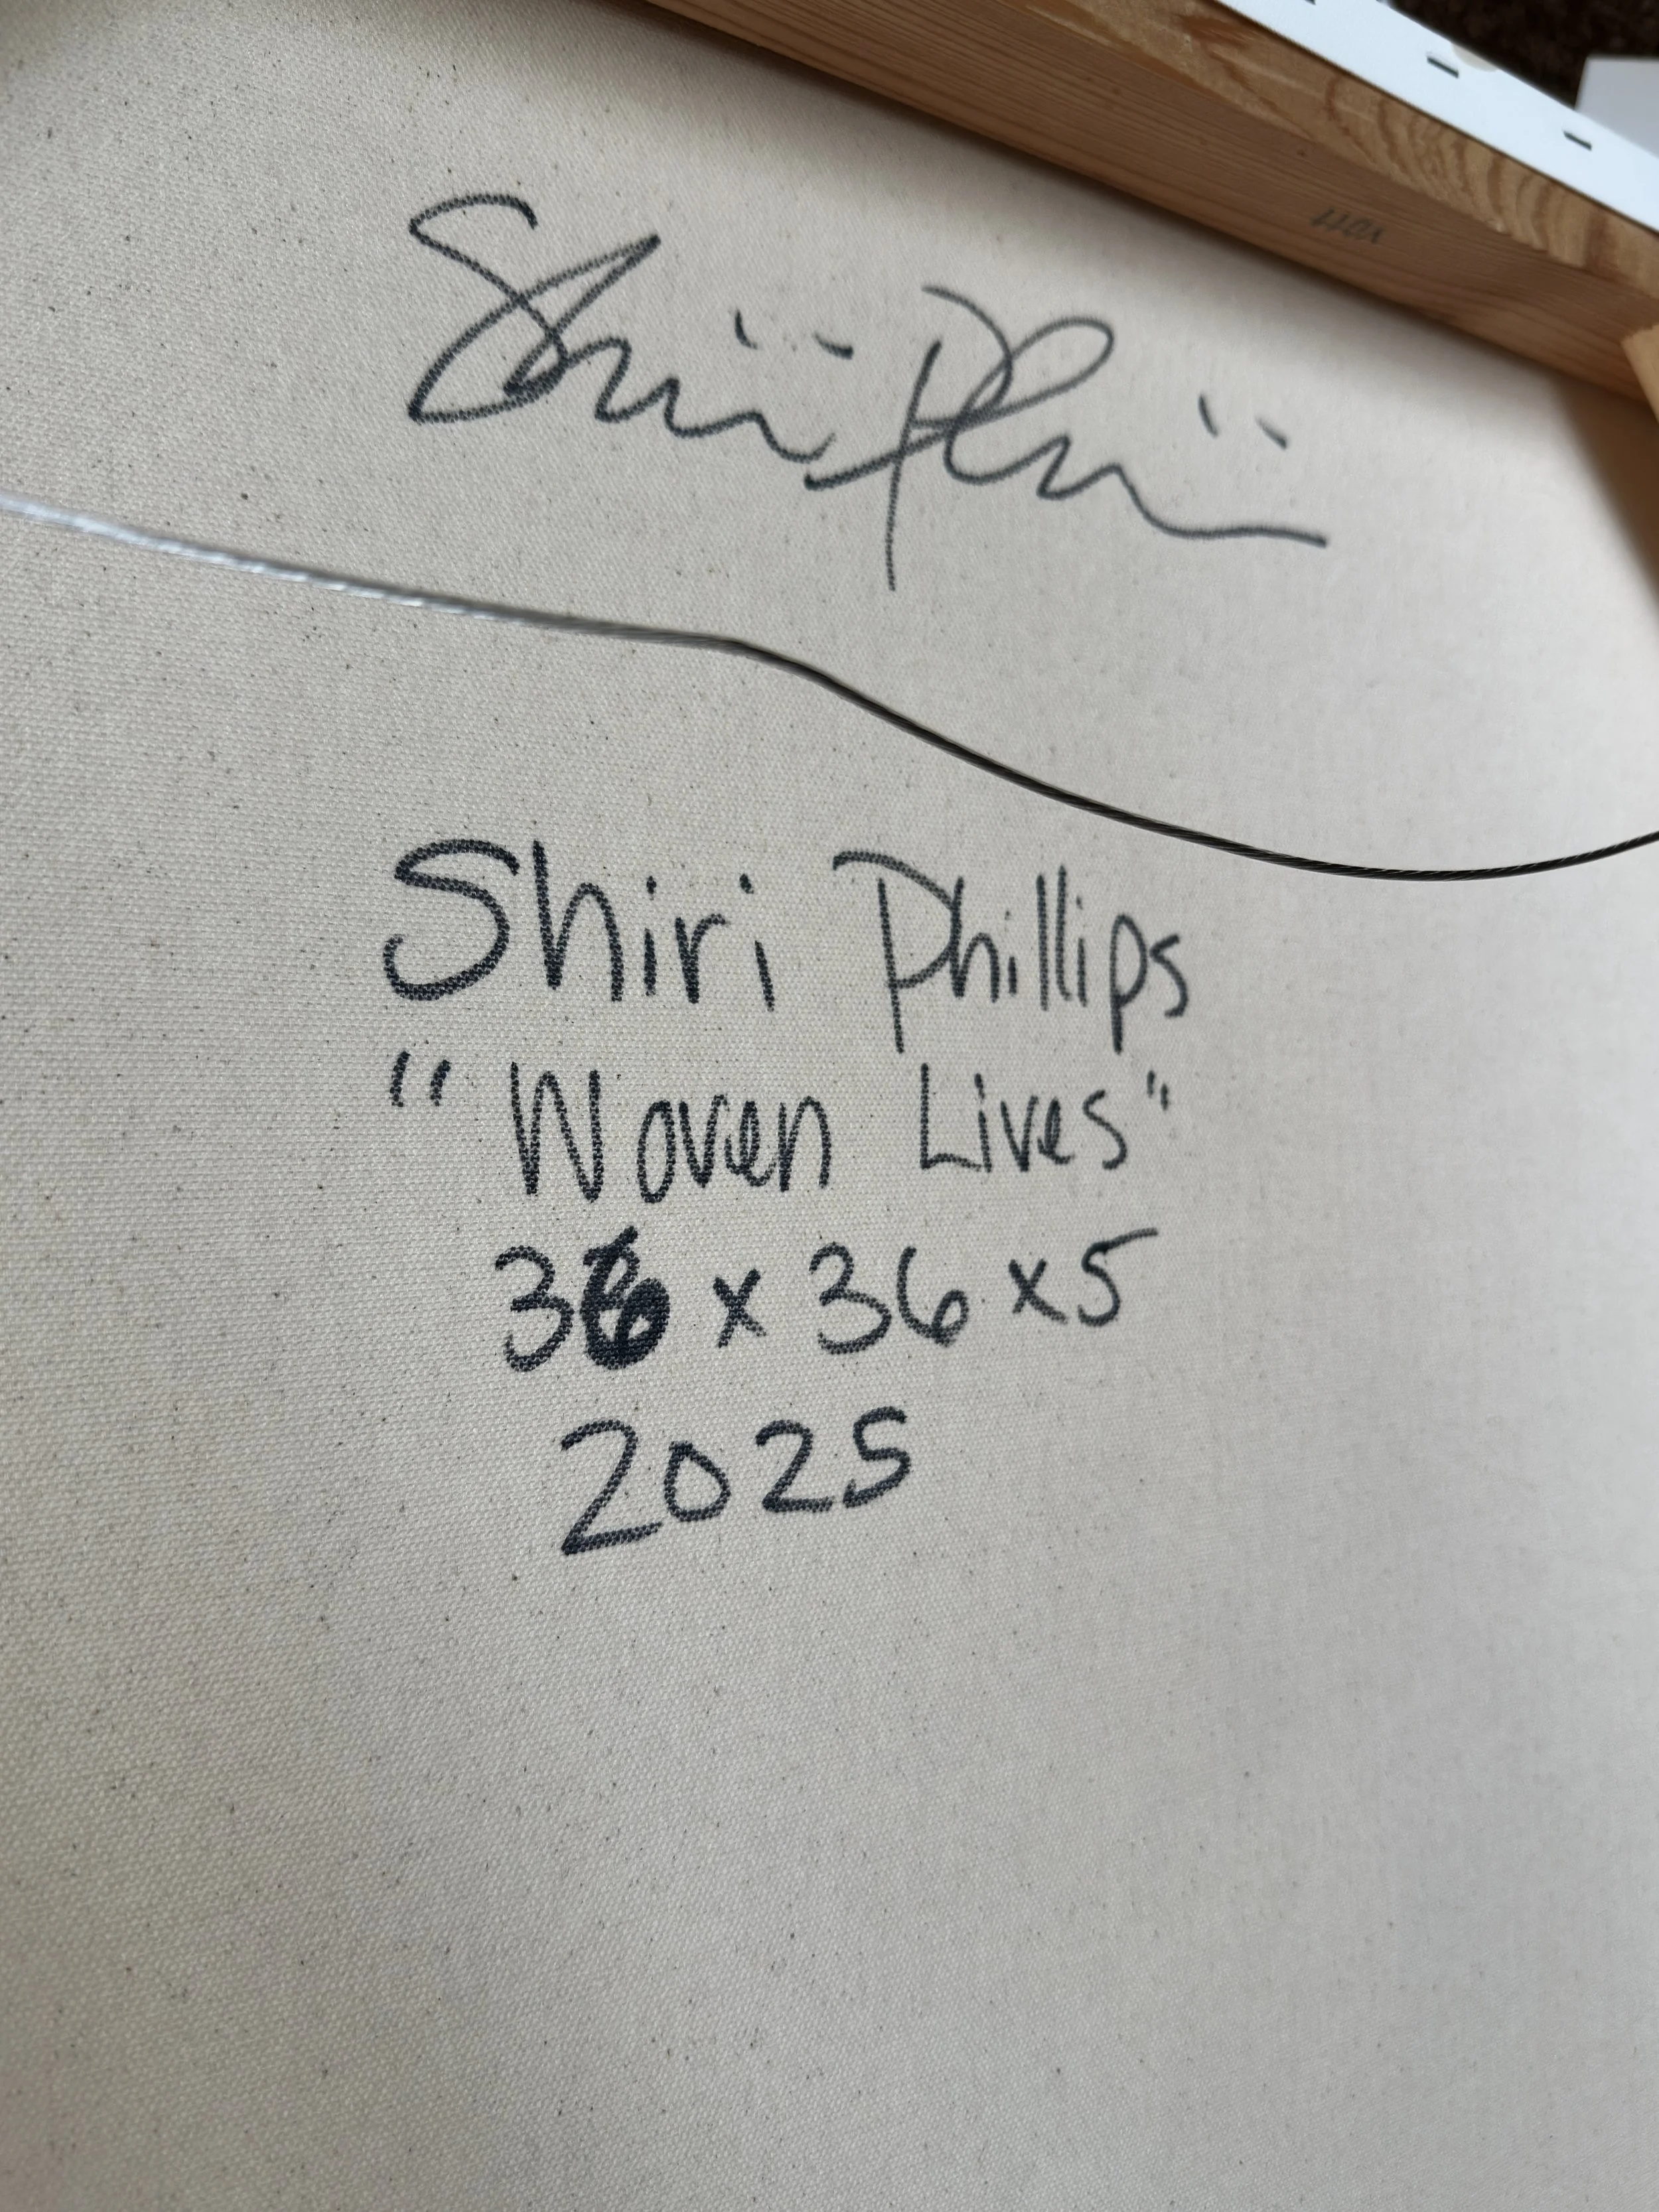 Shiri Phillips
"Woven Lives"
36 x 36 x 5
2025